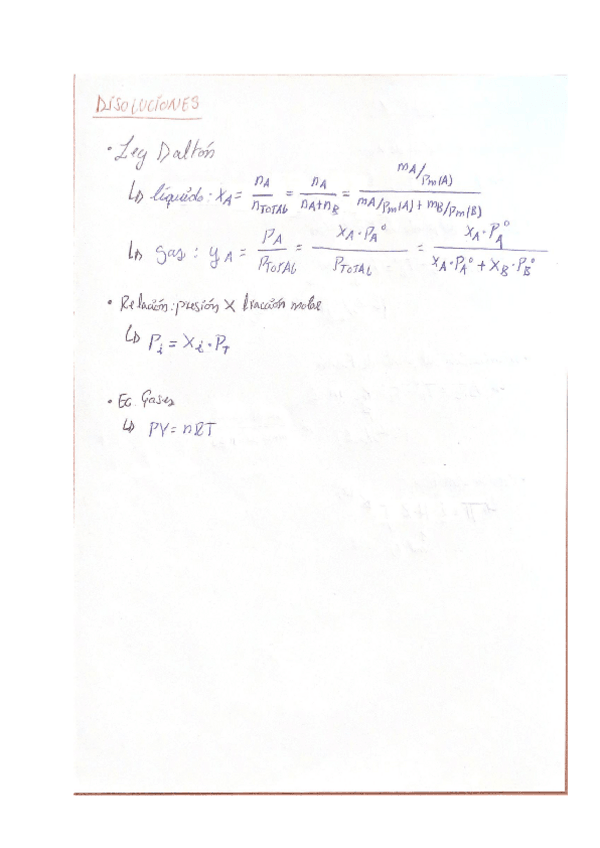 DISOLUCIONES
• Ley Daltón
↳ líquido: XA = nA/nTOTAL = nA/(nA+nB) = (mA/Pm(A))/(mA/Pm(A) + mB/Pm(B))
↳ gas: yA = PA/PTOTAL = XA·PA°/PTOTAL = XA·PA°/(XA·PA° + XB·PB°)
• Relación: presión X fracción molar
↳ Pi = Xi·PT
• Ec. Gases
↳ PV = nRT